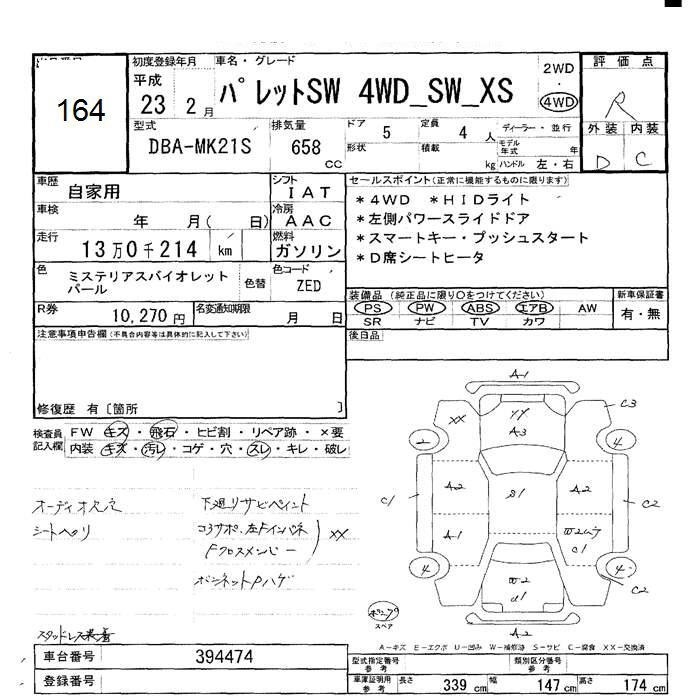 164
初度登録年月
平成
23 2月
車名・グレード
パレットSW 4WD_SW_XS
2WD
4WD
評価点
R
外装 内装
D C
型式
DBA-MK21S
排気量
658
cc
ドア
5
定員
4 人
形状
積載
kg
ディーラー・並行
モデル年式 年
ハンドル 左・右
車歴
自家用
シフト
IAT
車検
年 月( 日)
冷房
AAC
走行
13万0千214 km
燃料
ガソリン
色
ミステリアスバイオレット
パール
色替
色コード
ZED
R券
10,270円
名変通知期限
月 日
セールスポイント(正常に機能するものに限ります)
*4WD *HIDライト
*左側パワースライドドア
*スマートキー・プッシュスタート
*D席シートヒータ
装備品(純正品に限り○をつけてください)
PS PW ABS エアB AW
SR ナビ TV カワ
新車保証書
有・無
後日品
注意事項申告欄(不具合内容等は具体的に記入して下さい)
修復歴 有〔箇所 〕
検査員
記入欄
FW キズ・飛石・ヒビ割・リペア跡・×要
内装 キズ・汚レ・コゲ・穴・スレ・キレ・破レ
オーディオ欠穴
シートヘリ
下廻りサビペイント
コアサポ、左Fインパネ
Fクロスメンバー
XX
ボンネットPハゲ
スタッドレス装着
A-1
XX
YY
A3
C3
2
4
C1
A2
S1
A2
C2
A-1
C1
4
4
C2
A2
スペア
A-キズ E-エクボ U-凹み W-補修跡 S-サビ C-腐食 XX-交換済
車台番号
394474
登録番号
型式指定番号
参考
類別区分番号
参考
車庫証明用
参考
長さ 339 cm 幅 147 cm 高さ 174 cm